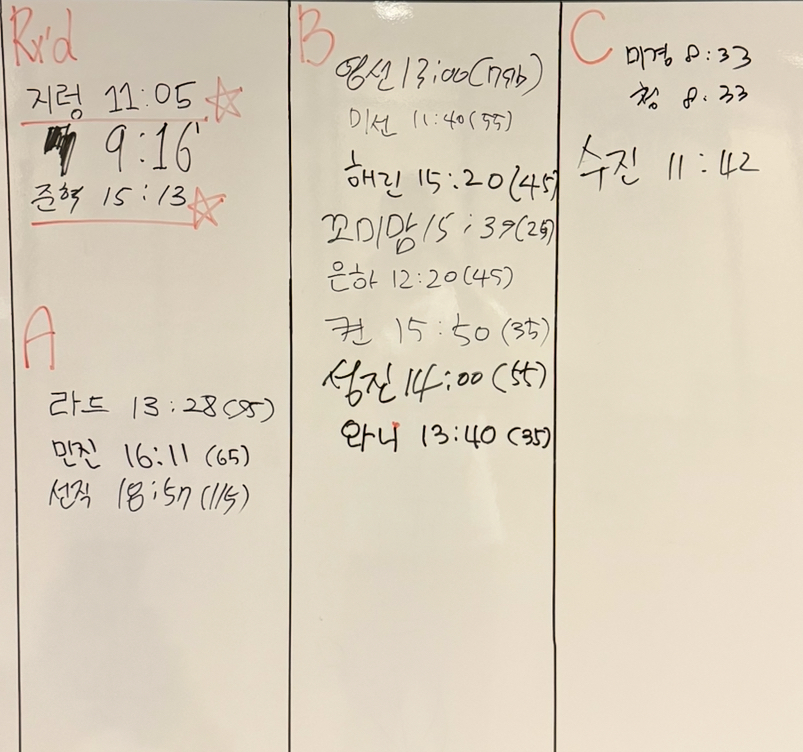 Rx'd
지렁 11:05
9:16
준혁 15:13
A
라드 13:28(95)
민진 16:11 (65)
선직 18:57 (115)
B
영선 13:00
미선 11:40(55)
해린 15:20(45)
꼬미맘 15:39(25)
은하 12:20(45)
퀸 15:50 (35)
성진 14:00 (55)
와니 13:40 (35)
C
미경 8:33
청 8:33
수진 11:42